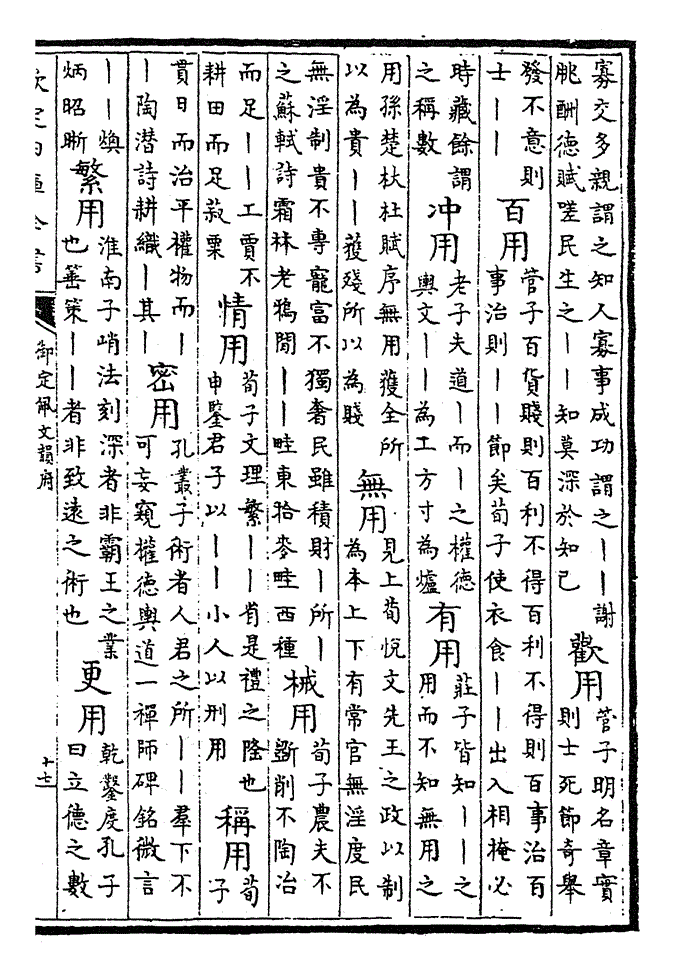 寡交多親謂之知人寡事成功謂之丨丨謝
朓酬德賦嗟民生之丨丨知莫深於知己
歡用
管子明名章實
則士死節奇舉
發不意則
士丨丨
百用
管子百貨賤則百利不得百利不得則百事治百
事治則丨丨節矣荀子使衣食丨丨出入相掩必
時藏餘謂
之稱數
冲用
老子夫道丨而丨之權德
輿文丨丨為工方寸為爐
有用
莊子皆知丨丨之
用而不知無用之
用孫楚杕杜賦序無用獲全所
以為貴丨丨獲殘所以為賤
無用
見上荀悅文先王之政以制
為本上下有常官無淫度民
無淫制貴不專寵富不獨奢民雖積財丨所丨
之蘇軾詩霜林老鴉閒丨丨畦東拾麥畦西種
械用
荀子農夫不
斵削不陶冶
而足丨丨工賈不
耕田而足菽粟
情用
荀子文理繁丨丨省是禮之隆也
申鑒君子以丨丨小人以刑用
稱用
荀
子
貫日而治平權物而丨
丨陶潜詩耕織丨其丨
密用
孔叢子術者人君之所丨丨羣下不
可妄窺權德輿道一禪師碑銘微言
丨丨煥
炳昭晰
繁用
淮南子峭法刻深者非霸王之業
也箠策丨丨者非致遠之術也
更用
乾鑿度孔子
曰立德之數
欽定四庫全書
御定佩文韻府
十七